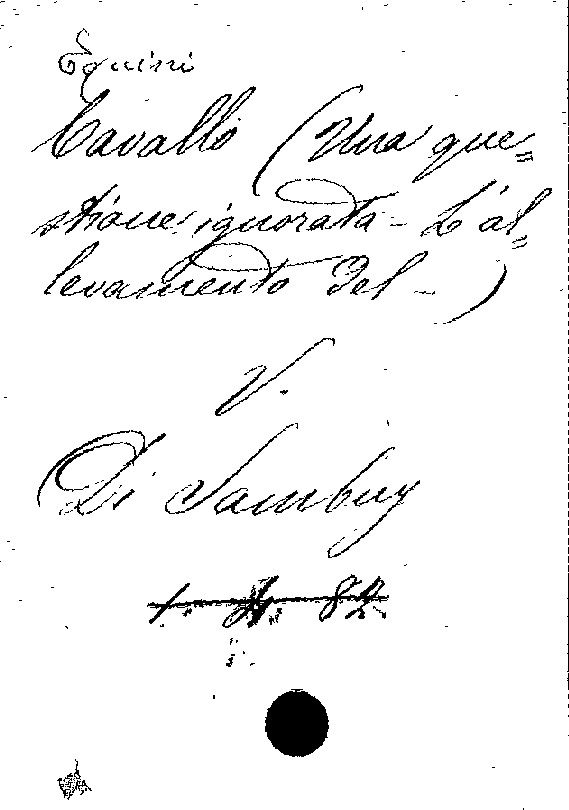 Equini
Cavallo (Una que=
stione ignorata - L'al=
levamento del - )
V.
Di Sambuy